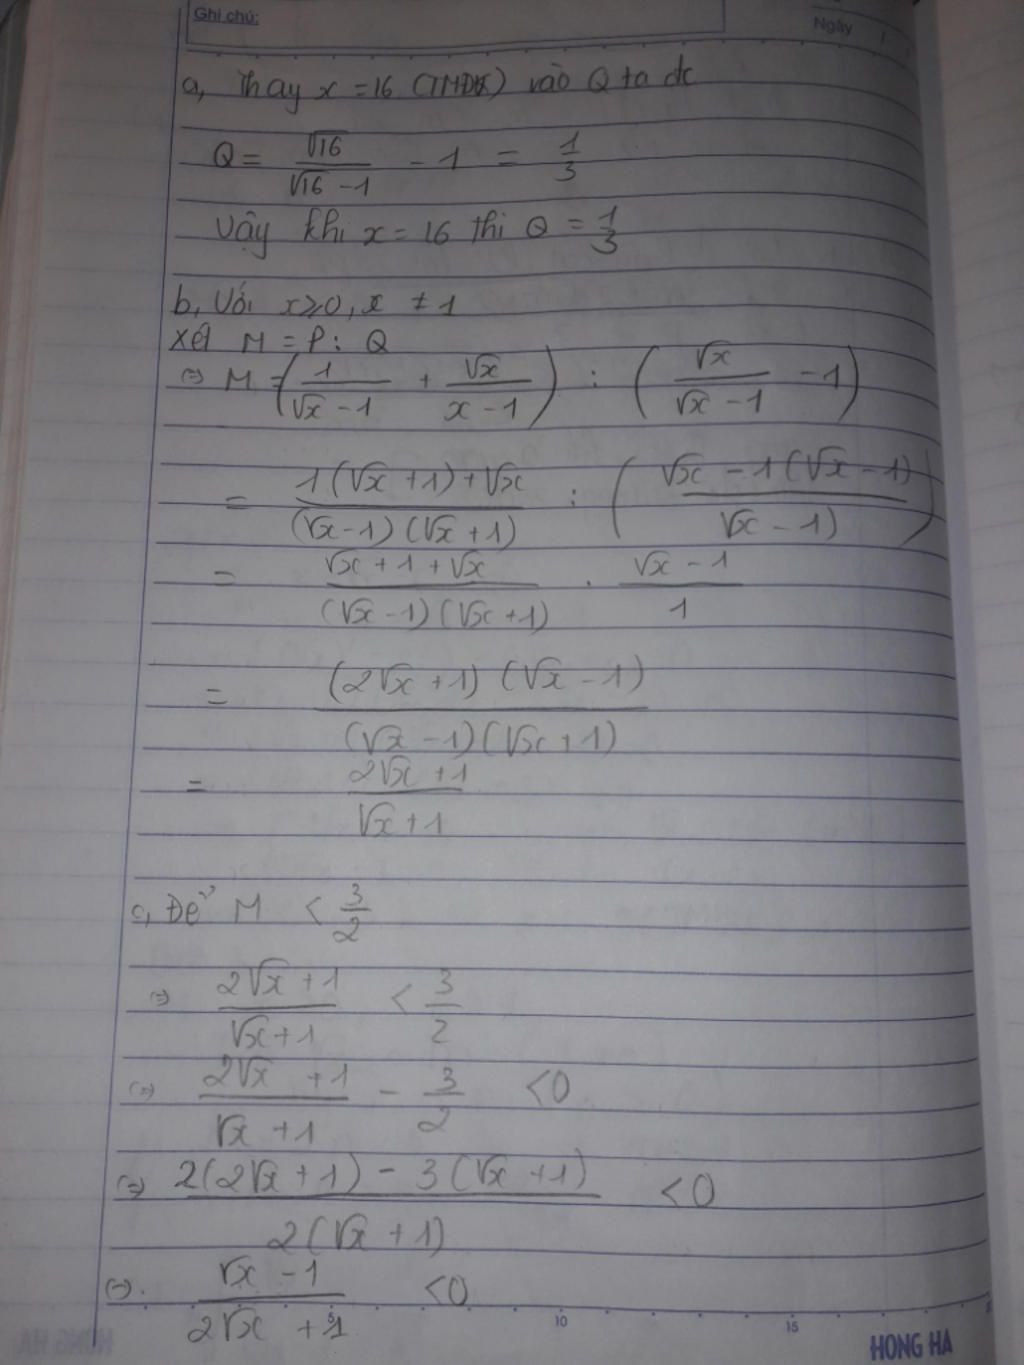 Ghi chú:
Ngày
a, Thay x = 16 (TMĐK) vào Q ta dc
Q = √16 / (√16 - 1) - 1 = 1/3
Vậy khi x = 16 thì Q = 1/3
b, Với x ≥ 0, x ≠ 1
Xét M = P : Q
(=) M = (1/(√x - 1) + √x/(x - 1)) : (√x/(√x - 1) - 1)
= (1(√x + 1) + √x)/((√x - 1)(√x + 1)) : ((√x - 1(√x - 1))/(√x - 1))
= (√x + 1 + √x)/((√x - 1)(√x + 1)) . (√x - 1)/1
= ((2√x + 1)(√x - 1))/((√x - 1)(√x + 1))
= (2√x + 1)/(√x + 1)
c, Để M < 3/2
(=) (2√x + 1)/(√x + 1) < 3/2
(=) (2√x + 1)/(√x + 1) - 3/2 < 0
(=) (2(2√x + 1) - 3(√x + 1))/(2(√x + 1)) < 0
(=) (√x - 1)/(2√x + 1) < 0
5 10 15
HONG HA